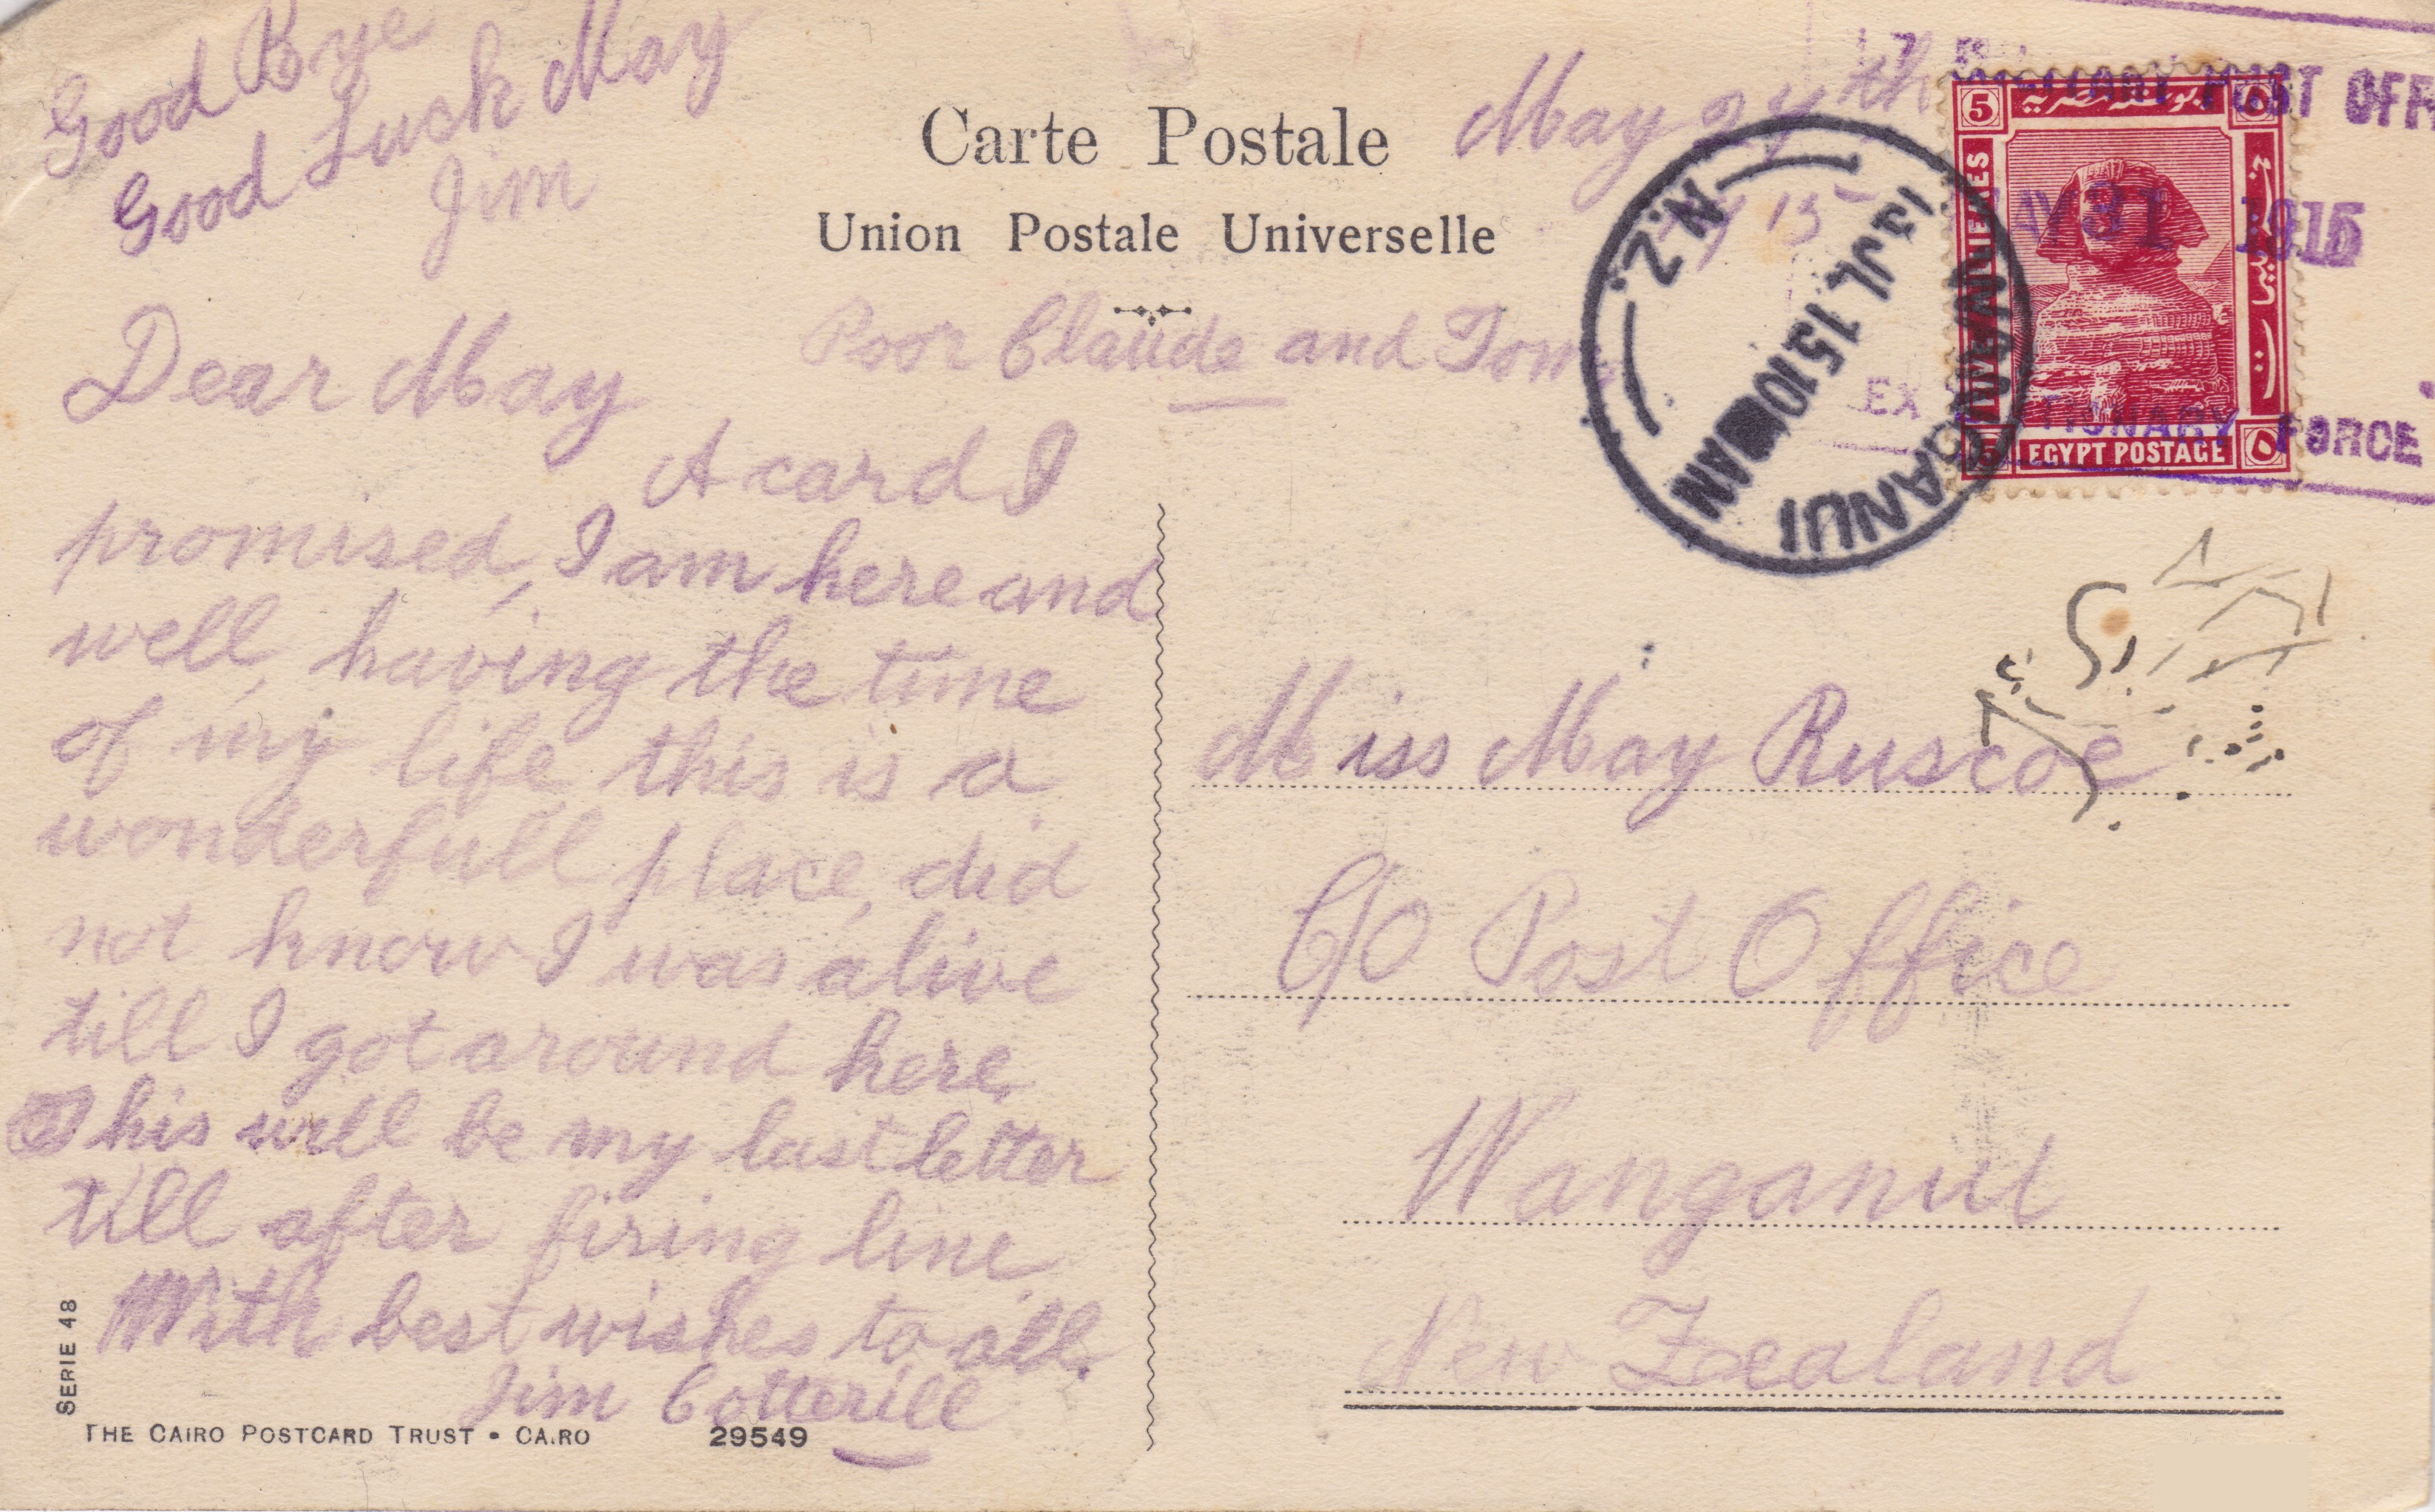 Good Bye
Good Luck May
Jim
Carte Postale
Union Postale Universelle
May 27th
1915
Poor Claude and Tom.
Dear May
A card I
promised, I am here and
well, having the time
of my life this is a
wonderfull place, did
not know I was alive
till I got around here,
This will be my last letter
till after firing line
With best wishes to all.
Jim Cotterill
SERIE 48
THE CAIRO POSTCARD TRUST • CAIRO
29549
MILITARY POST OFF
MAY 31 1915
EX TIONARY FORCE
5
5
EGYPT POSTAGE
WANGANUI
13 JL 15 10 AM
N.Z.
Miss May Ruscoe
C/O Post Office
Wanganui
New Zealand